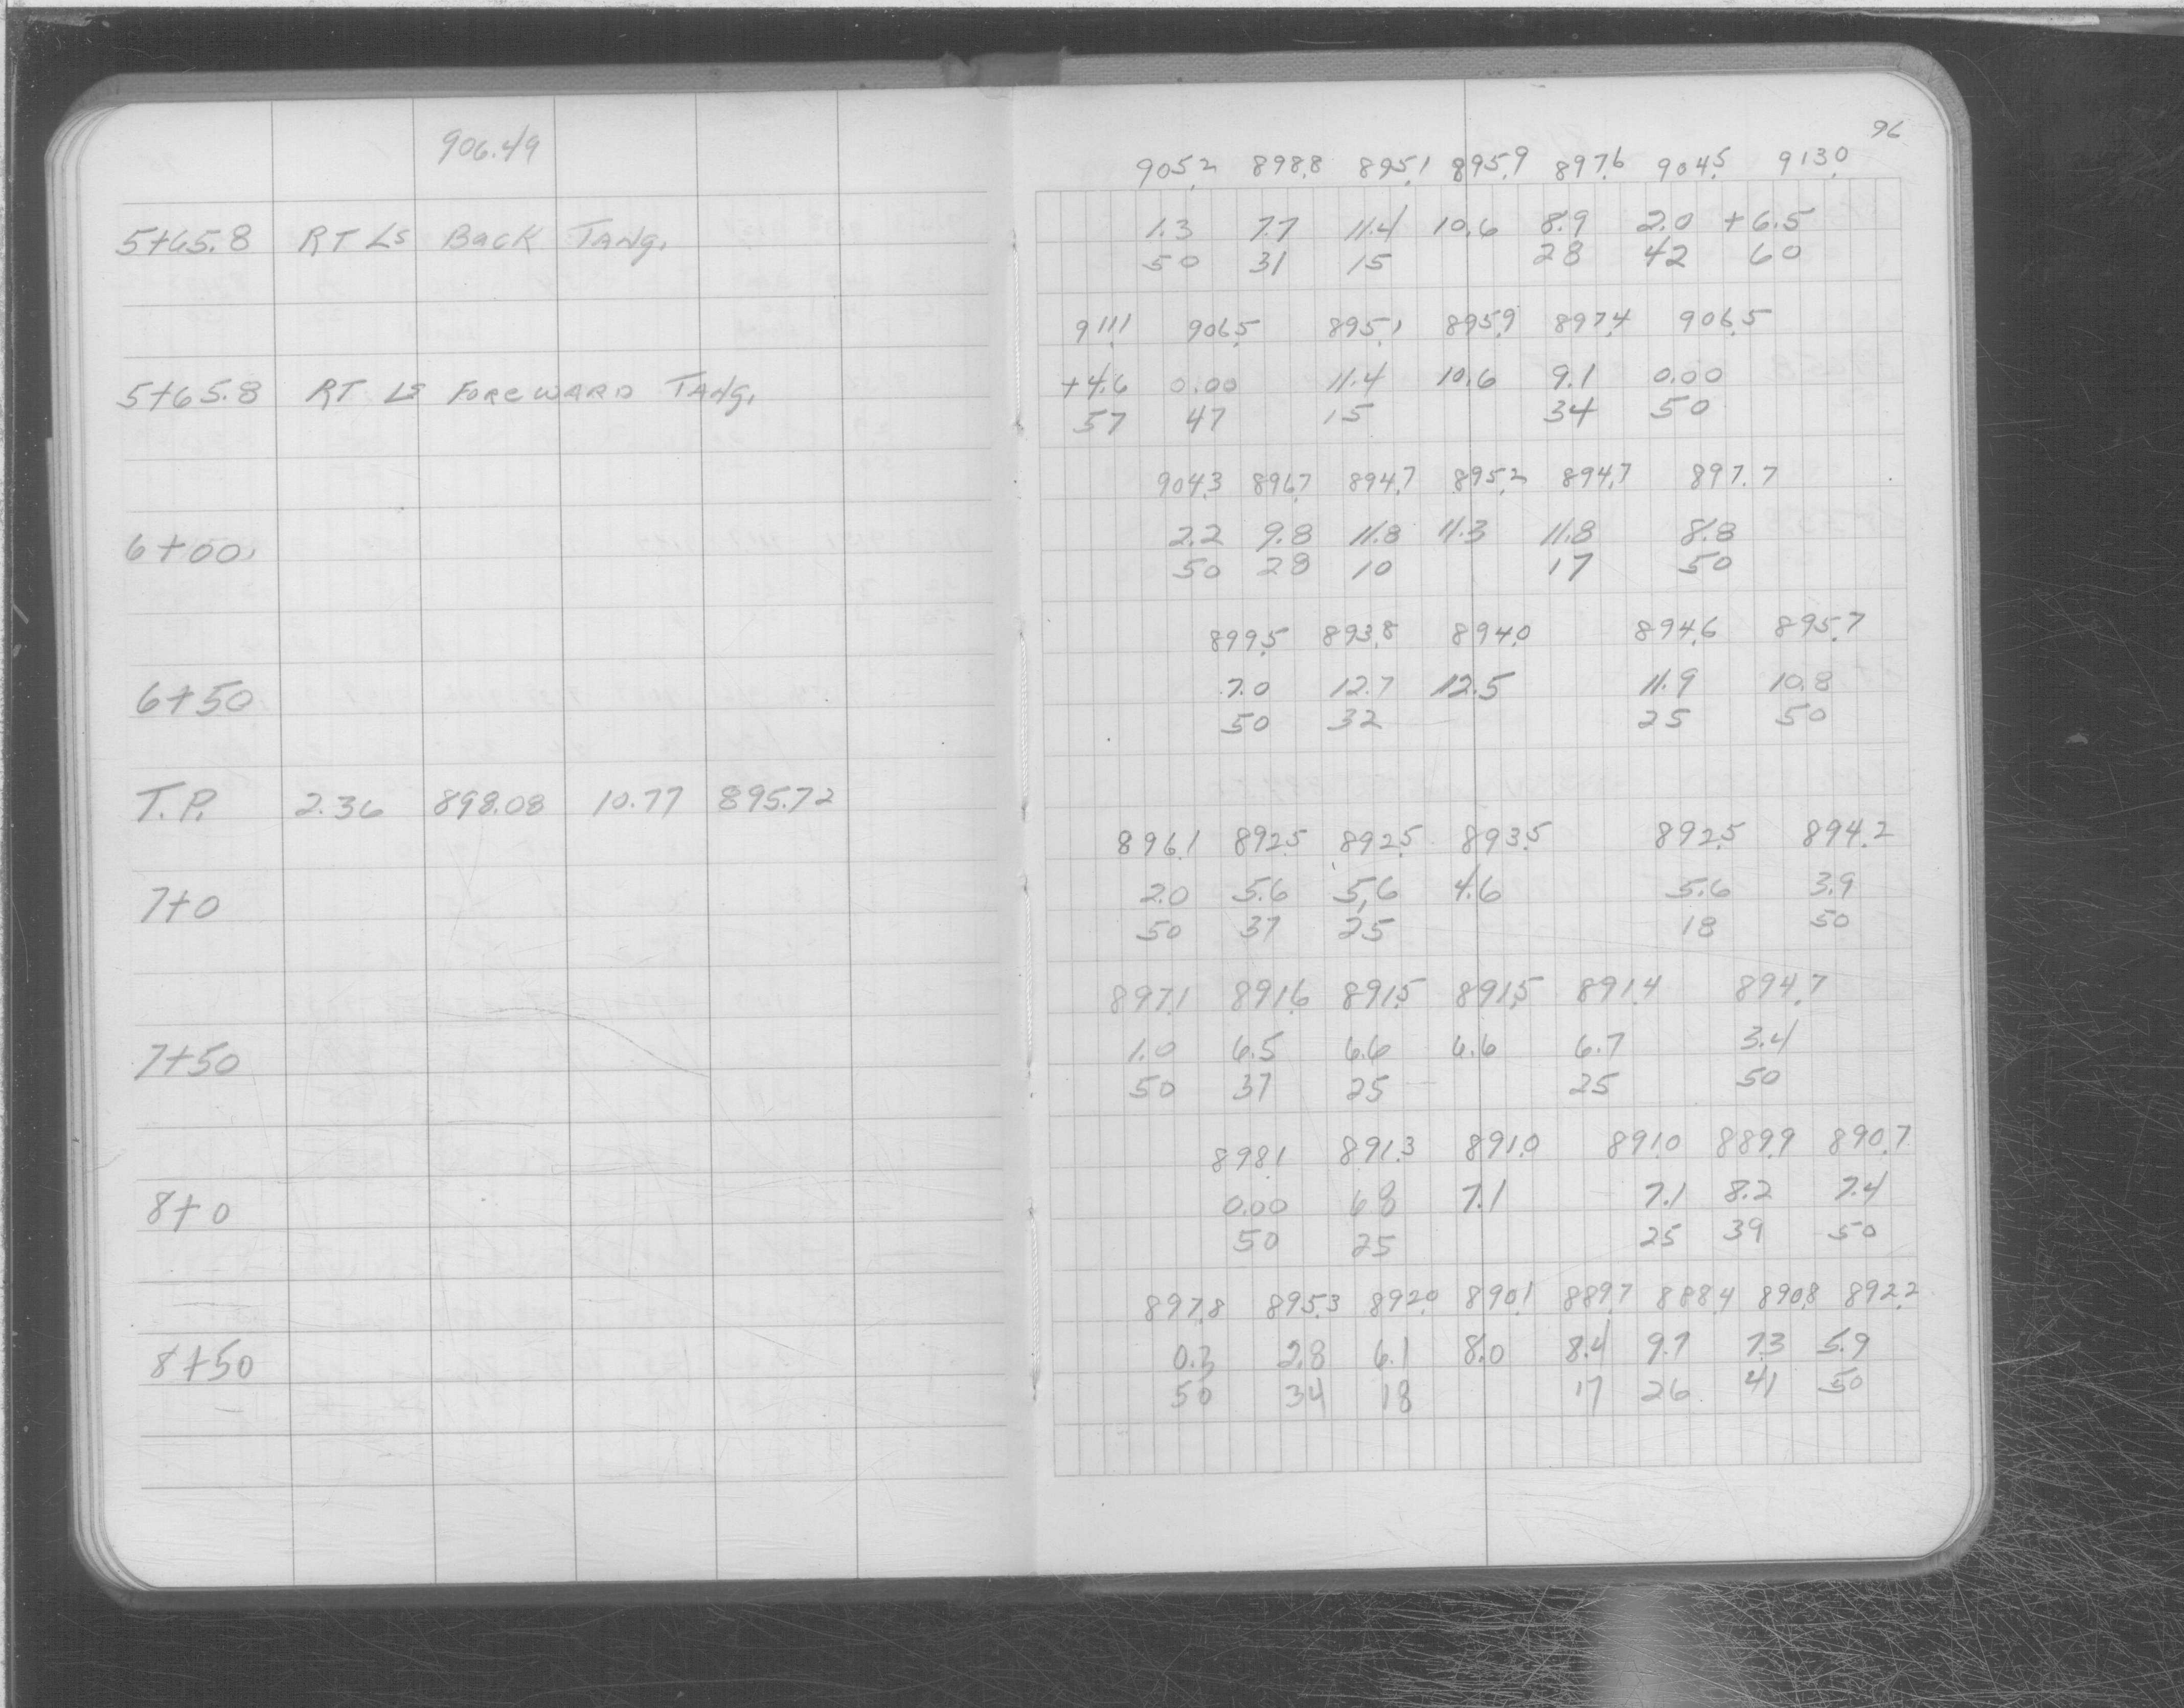 906.49
5+65.8 RT Ls Back Tang.
5+65.8 RT Ls Foreward Tang.
6+00.
6+50
T.P. 2.36 898.08 10.77 895.72
7+0
7+50
8+0
8+50
96
905.2 898.8 895.1 895.9 897.6 904.5 913.0
1.3 7.7 11.4 10.6 8.9 2.0 +6.5
50 31 15 28 42 60
911.1 906.5 895.1 895.9 897.4 906.5
+4.6 0.00 11.4 10.6 9.1 0.00
57 47 15 34 50
904.3 896.7 894.7 895.2 894.7 897.7
2.2 9.8 11.8 11.3 11.8 8.8
50 28 10 17 50
899.5 893.8 894.0 894.6 895.7
7.0 12.7 12.5 11.9 10.8
50 32 25 50
896.1 892.5 892.5 893.5 892.5 894.2
2.0 5.6 5.6 4.6 5.6 3.9
50 37 25 18 50
897.1 891.6 891.5 891.5 891.4 894.7
1.0 6.5 6.6 6.6 6.7 3.4
50 37 25 25 50
898.1 891.3 891.0 891.0 889.9 890.7
0.00 6.8 7.1 7.1 8.2 7.4
50 25 25 39 50
897.8 895.3 892.0 890.1 889.7 888.4 890.8 892.2
0.3 2.8 6.1 8.0 8.4 9.7 7.3 5.9
50 34 18 17 26 41 50